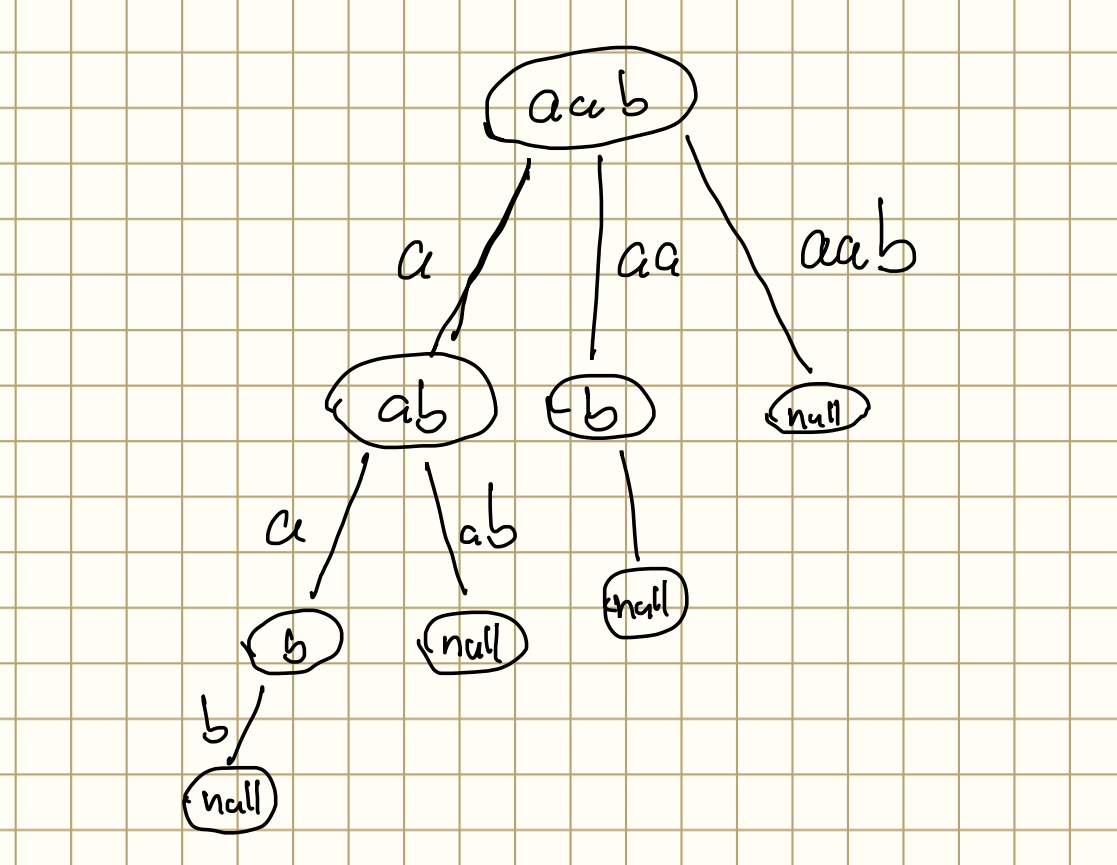 aab
a aa aab
ab b null
a ab
null
b null
b
null